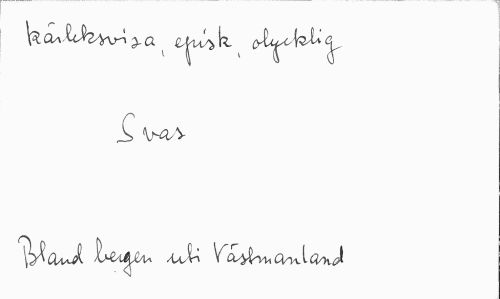 kärleksvisa, episk, olycklig
Svas
Bland bergen uti Västmanland